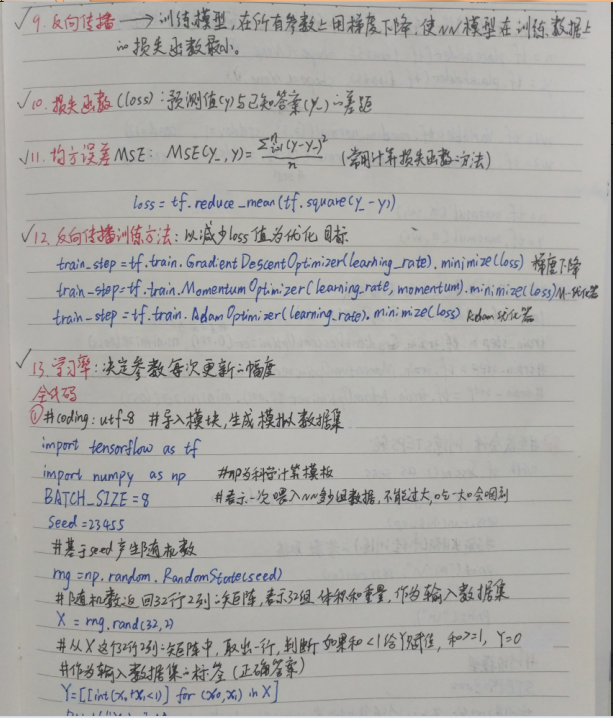 ✓9. 反向传播 → 训练模型,在所有参数上用梯度下降,使NN模型在训练数据上
的损失函数最小。
✓10. 损失函数(loss):预测值(y)与已知答案(y_)的差距
✓11. 均方误差MSE: MSE(y_, y)= Σⁿᵢ₌₁(y-y_)²/n (常用计算损失函数方法)
loss = tf.reduce_mean(tf.square(y_-y))
✓12. 反向传播训练方法:以减少loss值为优化目标
train_step = tf.train.GradientDescentOptimizer(learning_rate).minimize(loss) 梯度下降
train_step = tf.train.MomentumOptimizer(learning_rate, momentum).minimize(loss) M-优化器
train_step = tf.train.AdamOptimizer(learning.rate).minimize(loss) Adam优化器
✓13. 学习率:决定参数每次更新的幅度
全代码
① #coding: utf-8 #导入模块,生成模拟数据集
import tensorflow as tf
import numpy as np #np为科学计算模板
BATCH_SIZE = 8 #表示一次喂入NN多少组数据,不能过大,会噎到
seed = 23455
#基于seed产生随机数
rng = np.random.RandomState(seed)
#随机数返回32行2列的矩阵,表示32组 体积和重量,作为输入数据集
X = rng.rand(32,2)
#从X这个32行2列的矩阵中,取出一行,判断如果和<1给Y赋值,和>=1,Y=0
#作为输入数据集的标签(正确答案)
Y=[[int(x0+x1<1)] for (x0,x1) in X]